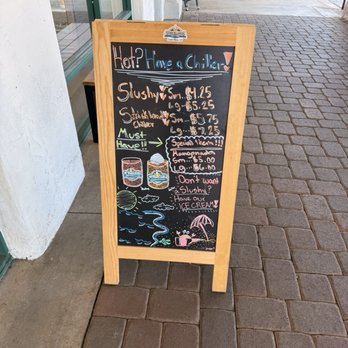 Hot? Have a Chiller!
Slushy Sm.. $4.25
Lg - $5.25
Sm... $5.75
Chiller Lg.. $7.25
Must Have!!
Special Item!!!
Sm... $5.00
Lg... $6.00
Don't want
Slushy?
Have our
ICE CREAM!